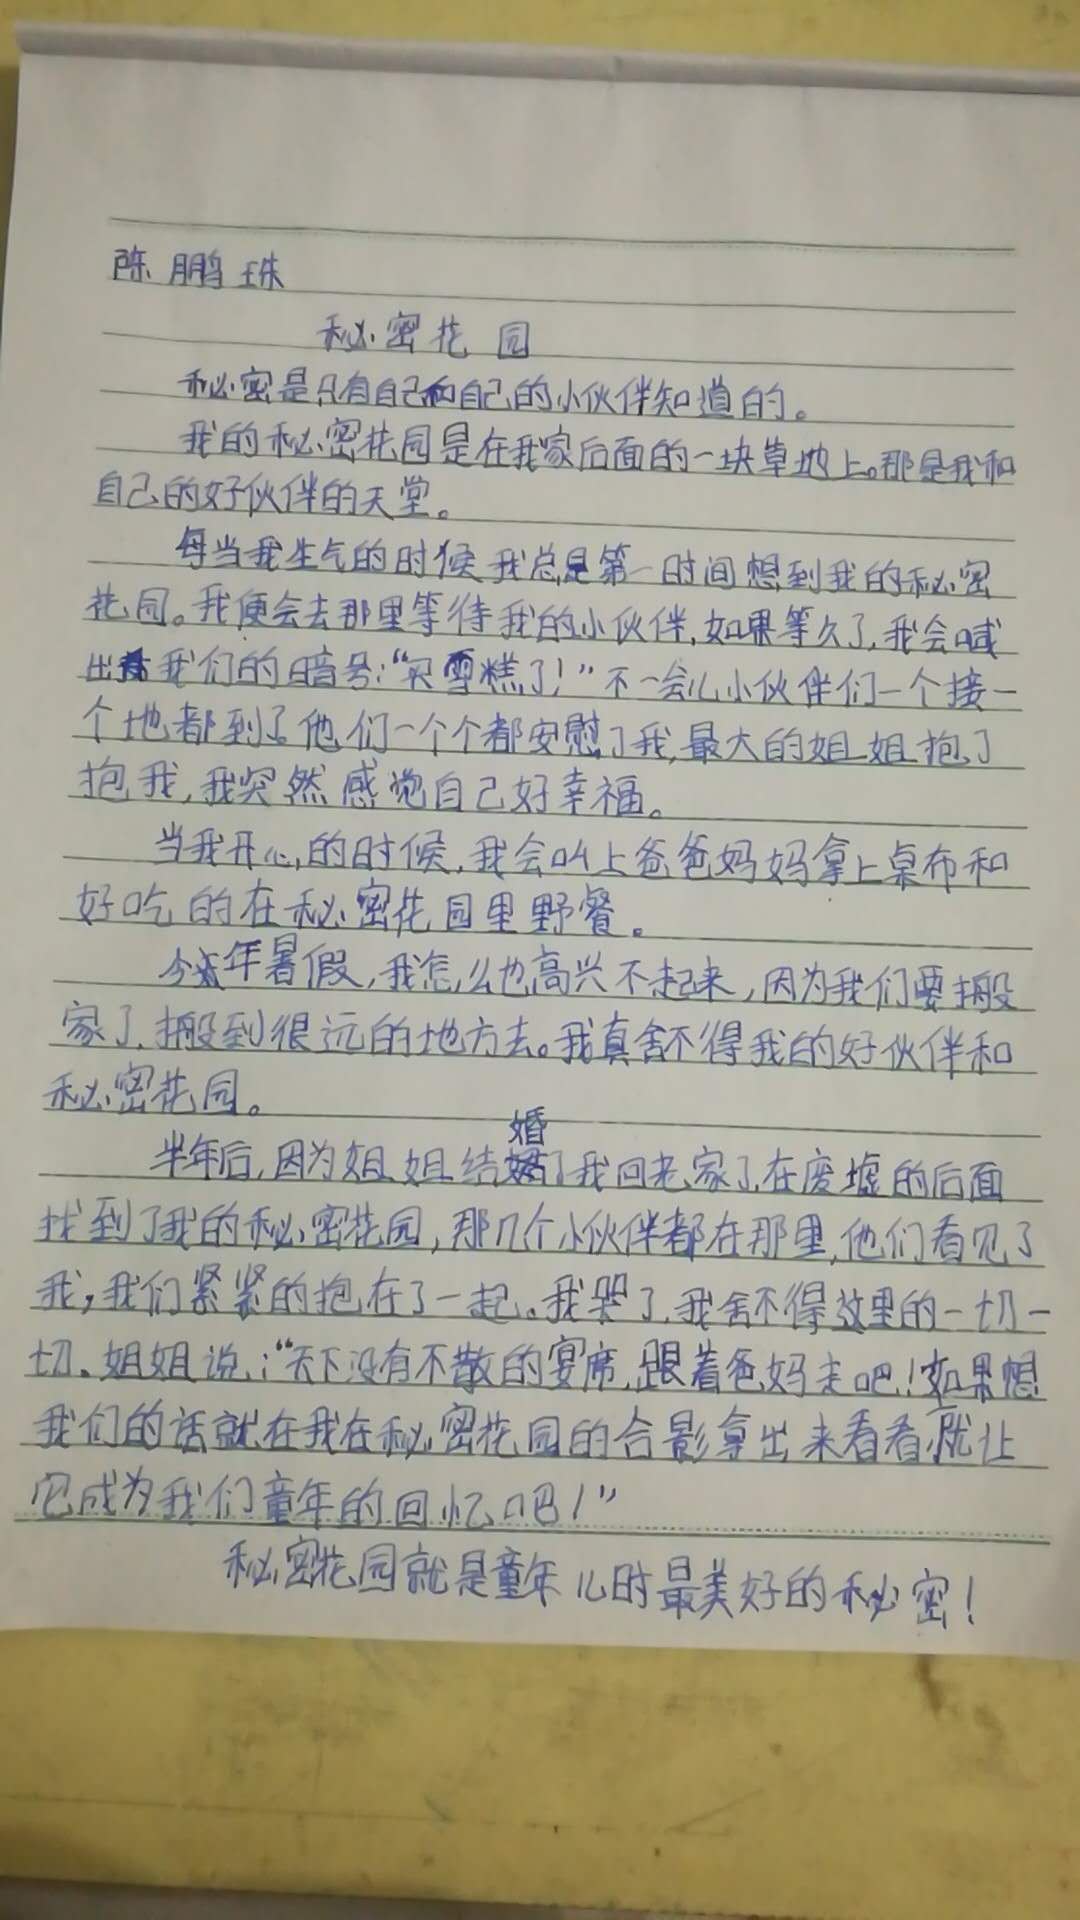 陈鹏珠
秘密花园
秘密是只有自己和自己的小伙伴知道的。
我的秘密花园是在我家后面的一块草地上。那是我和
自己的好伙伴的天堂。
每当我生气的时候我总是第一时间想到我的秘密
花园。我便会去那里等待我的小伙伴,如果等久了,我会喊
出我们的暗号:“买雪糕了!”不一会儿小伙伴们一个接一
个地都到了他们一个个都安慰了我,最大的姐姐抱了
抱我,我突然感觉自己好幸福。
当我开心的时候,我会叫上爸爸妈妈拿上桌布和
好吃的在秘密花园里野餐。
今年暑假,我怎么也高兴不起来,因为我们要搬
家了,搬到很远的地方去。我真舍不得我的好伙伴和
秘密花园。
半年后,因为姐姐结婚了我回老家了,在废墟的后面
找到了我的秘密花园,那几个小伙伴都在那里,他们看见了
我,我们紧紧的抱在了一起。我哭了,我舍不得这里的一切一
切、姐姐说:“天下没有不散的宴席,跟着爸妈走吧!如果想
我们的话就在我在秘密花园的合影拿出来看看,就让
它成为我们童年的回忆吧!”
秘密花园就是童年儿时最美好的秘密!